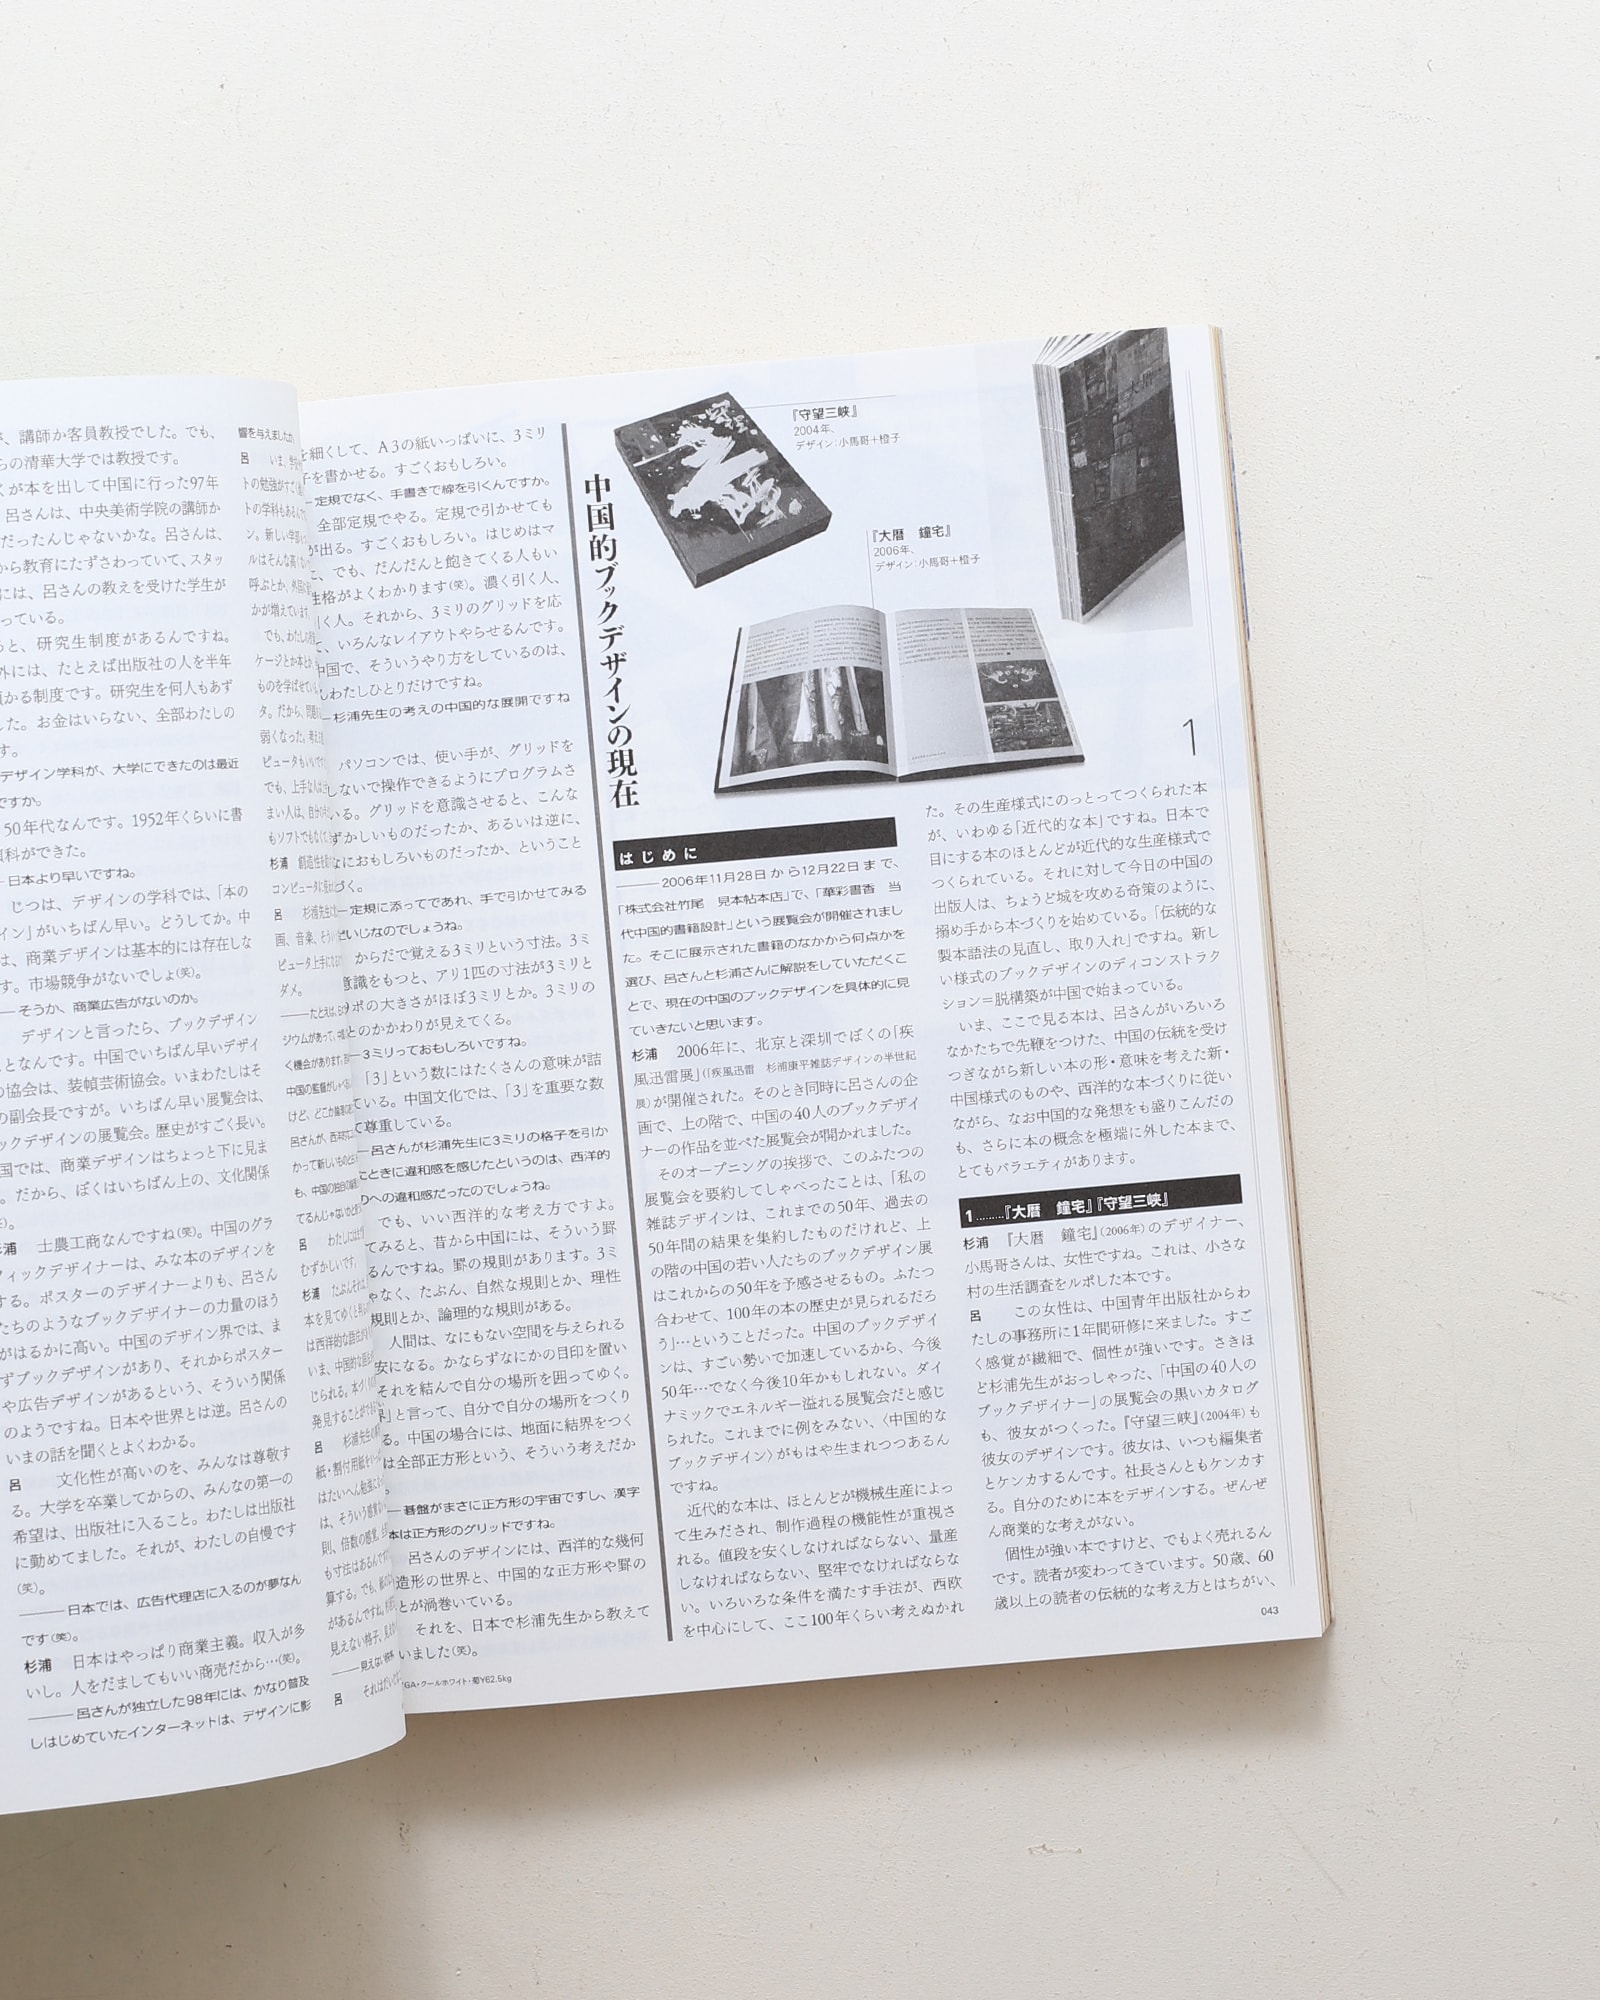 、講師か客員教授でした。でも、
らの清華大学では教授です。
くが本を出して中国に行った97年
呂さんは、中央美術学院の講師か
だったんじゃないかな。呂さんは、
から教育にたずさわっていて、スタッ
には、呂さんの教えを受けた学生が
っている。
っと、研究生制度があるんですね。
外には、たとえば出版社の人を半年
預かる制度です。研究生を何人もあず
した。お金はいらない、全部わたしの
す。
デザイン学科が、大学にできたのは最近
ですか。
50年代なんです。1952年くらいに書
科ができた。
—日本より早いですね。
じつは、デザインの学科では、「本の
イン」がいちばん早い。どうしてか。中
は、商業デザインは基本的には存在しな
す。市場競争がないでしょ(笑)。
——そうか、商業広告がないのか。
デザインと言ったら、ブックデザイン
ことなんです。中国でいちばん早いデザイ
の協会は、装幀芸術協会。いまわたしはそ
の副会長ですが。いちばん早い展覧会は、
ックデザインの展覧会。歴史がすごく長い。
国では、商業デザインはちょっと下に見ま
。だから、ぼくはいちばん上の、文化関係
笑)。
杉浦 士農工商なんですね(笑)。中国のグラ
フィックデザイナーは、みな本のデザインを
する。ポスターのデザイナーよりも、呂さん
たちのようなブックデザイナーの力量のほう
がはるかに高い。中国のデザイン界では、ま
ずブックデザインがあり、それからポスター
や広告デザインがあるという、そういう関係
のようですね。日本や世界とは逆。呂さんの
いまの話を聞くとよくわかる。
呂 文化性が高いのを、みんなは尊敬す
る。大学を卒業してからの、みんなの第一の
希望は、出版社に入ること。わたしは出版社
に勤めてました。それが、わたしの自慢です
(笑)。
——日本では、広告代理店に入るのが夢なん
です(笑)。
杉浦 日本はやっぱり商業主義。収入が多
いし。人をだましてもいい商売だから…(笑)。
——呂さんが独立した98年には、かなり普及
しはじめていたインターネットは、デザインに影
響を与えましたか
呂 いま、学生
トの勉強がすごく
トの学科もある
ン。新しい学部
ルはそんな高く
呼ぶとか、外国
かが増えています
でも、わたしの
ケージとか本とか
ものを学ばせて
タ。だから、問題
弱くなった。考え
ピュータもいいです
でも、上手な人は
まい人は、自分の
もソフトでもなくて
杉浦 創造性を
コンピュータに
呂 杉浦先生は
画、音楽、そうい
ピュータ上手に
ダメ。
——たとえば、
ジウムがあって、中国
く機会があります。
中国の監督がいる
けど、どこか
呂さんが、西洋的
かって新しいものと
も、中国の独自の
てるんじゃないかと
呂 わたしには
むずかしいです。
杉浦 たぶんそれ
本を見てゆくと
は西洋的な語法
いま、中国的な
じられる。本づくり
発見することができる
呂 杉浦先生の
紙・割付用紙を
はたいへん勉強に
は、そういう感覚
則、倍数の感覚、
も寸法はあるんです
算する。でも、
があるんですね。
見えない格子、見え
——見えない格子
呂 それはだいたい
を細くして、A3の紙いっぱいに、3ミリ
子を書かせる。すごくおもしろい。
—定規でなく、手書きで線を引くんですか。
全部定規でやる。定規で引かせても
が出る。すごくおもしろい。はじめはマ
こ、でも、だんだんと飽きてくる人もい
性格がよくわかります(笑)。濃く引く人、
引く人。それから、3ミリのグリッドを応
て、いろんなレイアウトやらせるんです。
中国で、そういうやり方をしているのは、
わたしひとりだけですね。
—杉浦先生の考えの中国的な展開ですね
パソコンでは、使い手が、グリッドを
しないで操作できるようにプログラムさ
いる。グリッドを意識させると、こんな
ずかしいものだったか、あるいは逆に、
なにおもしろいものだったか、ということ
づく。
—定規に添ってであれ、手で引かせてみる
だいじなのでしょうね。
からだで覚える3ミリという寸法。3ミ
意識をもつと、アリ1匹の寸法が3ミリと
ボの大きさがほぼ3ミリとか。3ミリの
とのかかわりが見えてくる。
—3ミリっておもしろいですね。
「3」という数にはたくさんの意味が詰
ている。中国文化では、「3」を重要な数
て尊重している。
—呂さんが杉浦先生に3ミリの格子を引か
ときに違和感を感じたというのは、西洋的
りへの違和感だったのでしょうね。
でも、いい西洋的な考え方ですよ。
てみると、昔から中国には、そういう罫
るんですね。罫の規則があります。3ミ
やなく、たぶん、自然な規則とか、理性
規則とか、論理的な規則がある。
人間は、なにもない空間を与えられる
安になる。かならずなにかの目印を置い
それを結んで自分の場所を囲ってゆく。
界」と言って、自分で自分の場所をつくり
る。中国の場合には、地面に結界をつく
は全部正方形という、そういう考えだか
。
—碁盤がまさに正方形の宇宙ですし、漢字
本は正方形のグリッドですね。
呂さんのデザインには、西洋的な幾何
造形の世界と、中国的な正方形や罫の
とが渦巻いている。
それを、日本で杉浦先生から教えて
いました(笑)。
GA・クールホワイト・菊Y62.5kg
中国的ブックデザインの現在
『守望三峡』
2004年、
デザイン:小馬哥+橙子
『大暦 鐘宅』
2006年、
デザイン:小馬哥+橙子
1
はじめに
——2006年11月28日から12月22日まで、
「株式会社竹尾 見本帖本店」で、「華彩書香 当
代中国的書籍設計」という展覧会が開催されまし
た。そこに展示された書籍のなかから何点かを
選び、呂さんと杉浦さんに解説をしていただくこ
とで、現在の中国のブックデザインを具体的に見
ていきたいと思います。
杉浦 2006年に、北京と深圳でぼくの「疾
風迅雷展」(「疾風迅雷 杉浦康平雑誌デザインの半世紀
展」)が開催された。そのとき同時に呂さんの企
画で、上の階で、中国の40人のブックデザイ
ナーの作品を並べた展覧会が開かれました。
そのオープニングの挨拶で、このふたつの
展覧会を要約してしゃべったことは、「私の
雑誌デザインは、これまでの50年、過去の
50年間の結果を集約したものだけれど、上
の階の中国の若い人たちのブックデザイン展
はこれからの50年を予感させるもの。ふたつ
合わせて、100年の本の歴史が見られるだろ
う」…ということだった。中国のブックデザイ
ンは、すごい勢いで加速しているから、今後
50年…でなく今後10年かもしれない。ダイ
ナミックでエネルギー溢れる展覧会だと感じ
られた。これまでに例をみない、〈中国的な
ブックデザイン〉がもはや生まれつつあるん
ですね。
近代的な本は、ほとんどが機械生産によっ
て生みだされ、制作過程の機能性が重視さ
れる。値段を安くしなければならない、量産
しなければならない、堅牢でなければならな
い。いろいろな条件を満たす手法が、西欧
を中心にして、ここ100年くらい考えぬかれ
た。その生産様式にのっとってつくられた本
が、いわゆる「近代的な本」ですね。日本で
目にする本のほとんどが近代的な生産様式で
つくられている。それに対して今日の中国の
出版人は、ちょうど城を攻める奇策のように、
搦め手から本づくりを始めている。「伝統的な
製本語法の見直し、取り入れ」ですね。新し
い様式のブックデザインのディコンストラク
ション=脱構築が中国で始まっている。
いま、ここで見る本は、呂さんがいろいろ
なかたちで先鞭をつけた、中国の伝統を受け
つぎながら新しい本の形・意味を考えた新・
中国様式のものや、西洋的な本づくりに従い
ながら、なお中国的な発想をも盛りこんだの
も、さらに本の概念を極端に外した本まで、
とてもバラエティがあります。
1………『大暦 鐘宅』『守望三峡』
杉浦 『大暦 鐘宅』(2006年)のデザイナー、
小馬哥さんは、女性ですね。これは、小さな
村の生活調査をルポした本です。
呂 この女性は、中国青年出版社からわ
たしの事務所に1年間研修に来ました。すご
く感覚が繊細で、個性が強いです。さきほ
ど杉浦先生がおっしゃった、「中国の40人の
ブックデザイナー」の展覧会の黒いカタログ
も、彼女がつくった。『守望三峡』(2004年)も
彼女のデザインです。彼女は、いつも編集者
とケンカするんです。社長さんともケンカす
る。自分のために本をデザインする。ぜんぜ
ん商業的な考えがない。
個性が強い本ですけど、でもよく売れるん
です。読者が変わってきています。50歳、60
歳以上の読者の伝統的な考え方とはちがい、
043